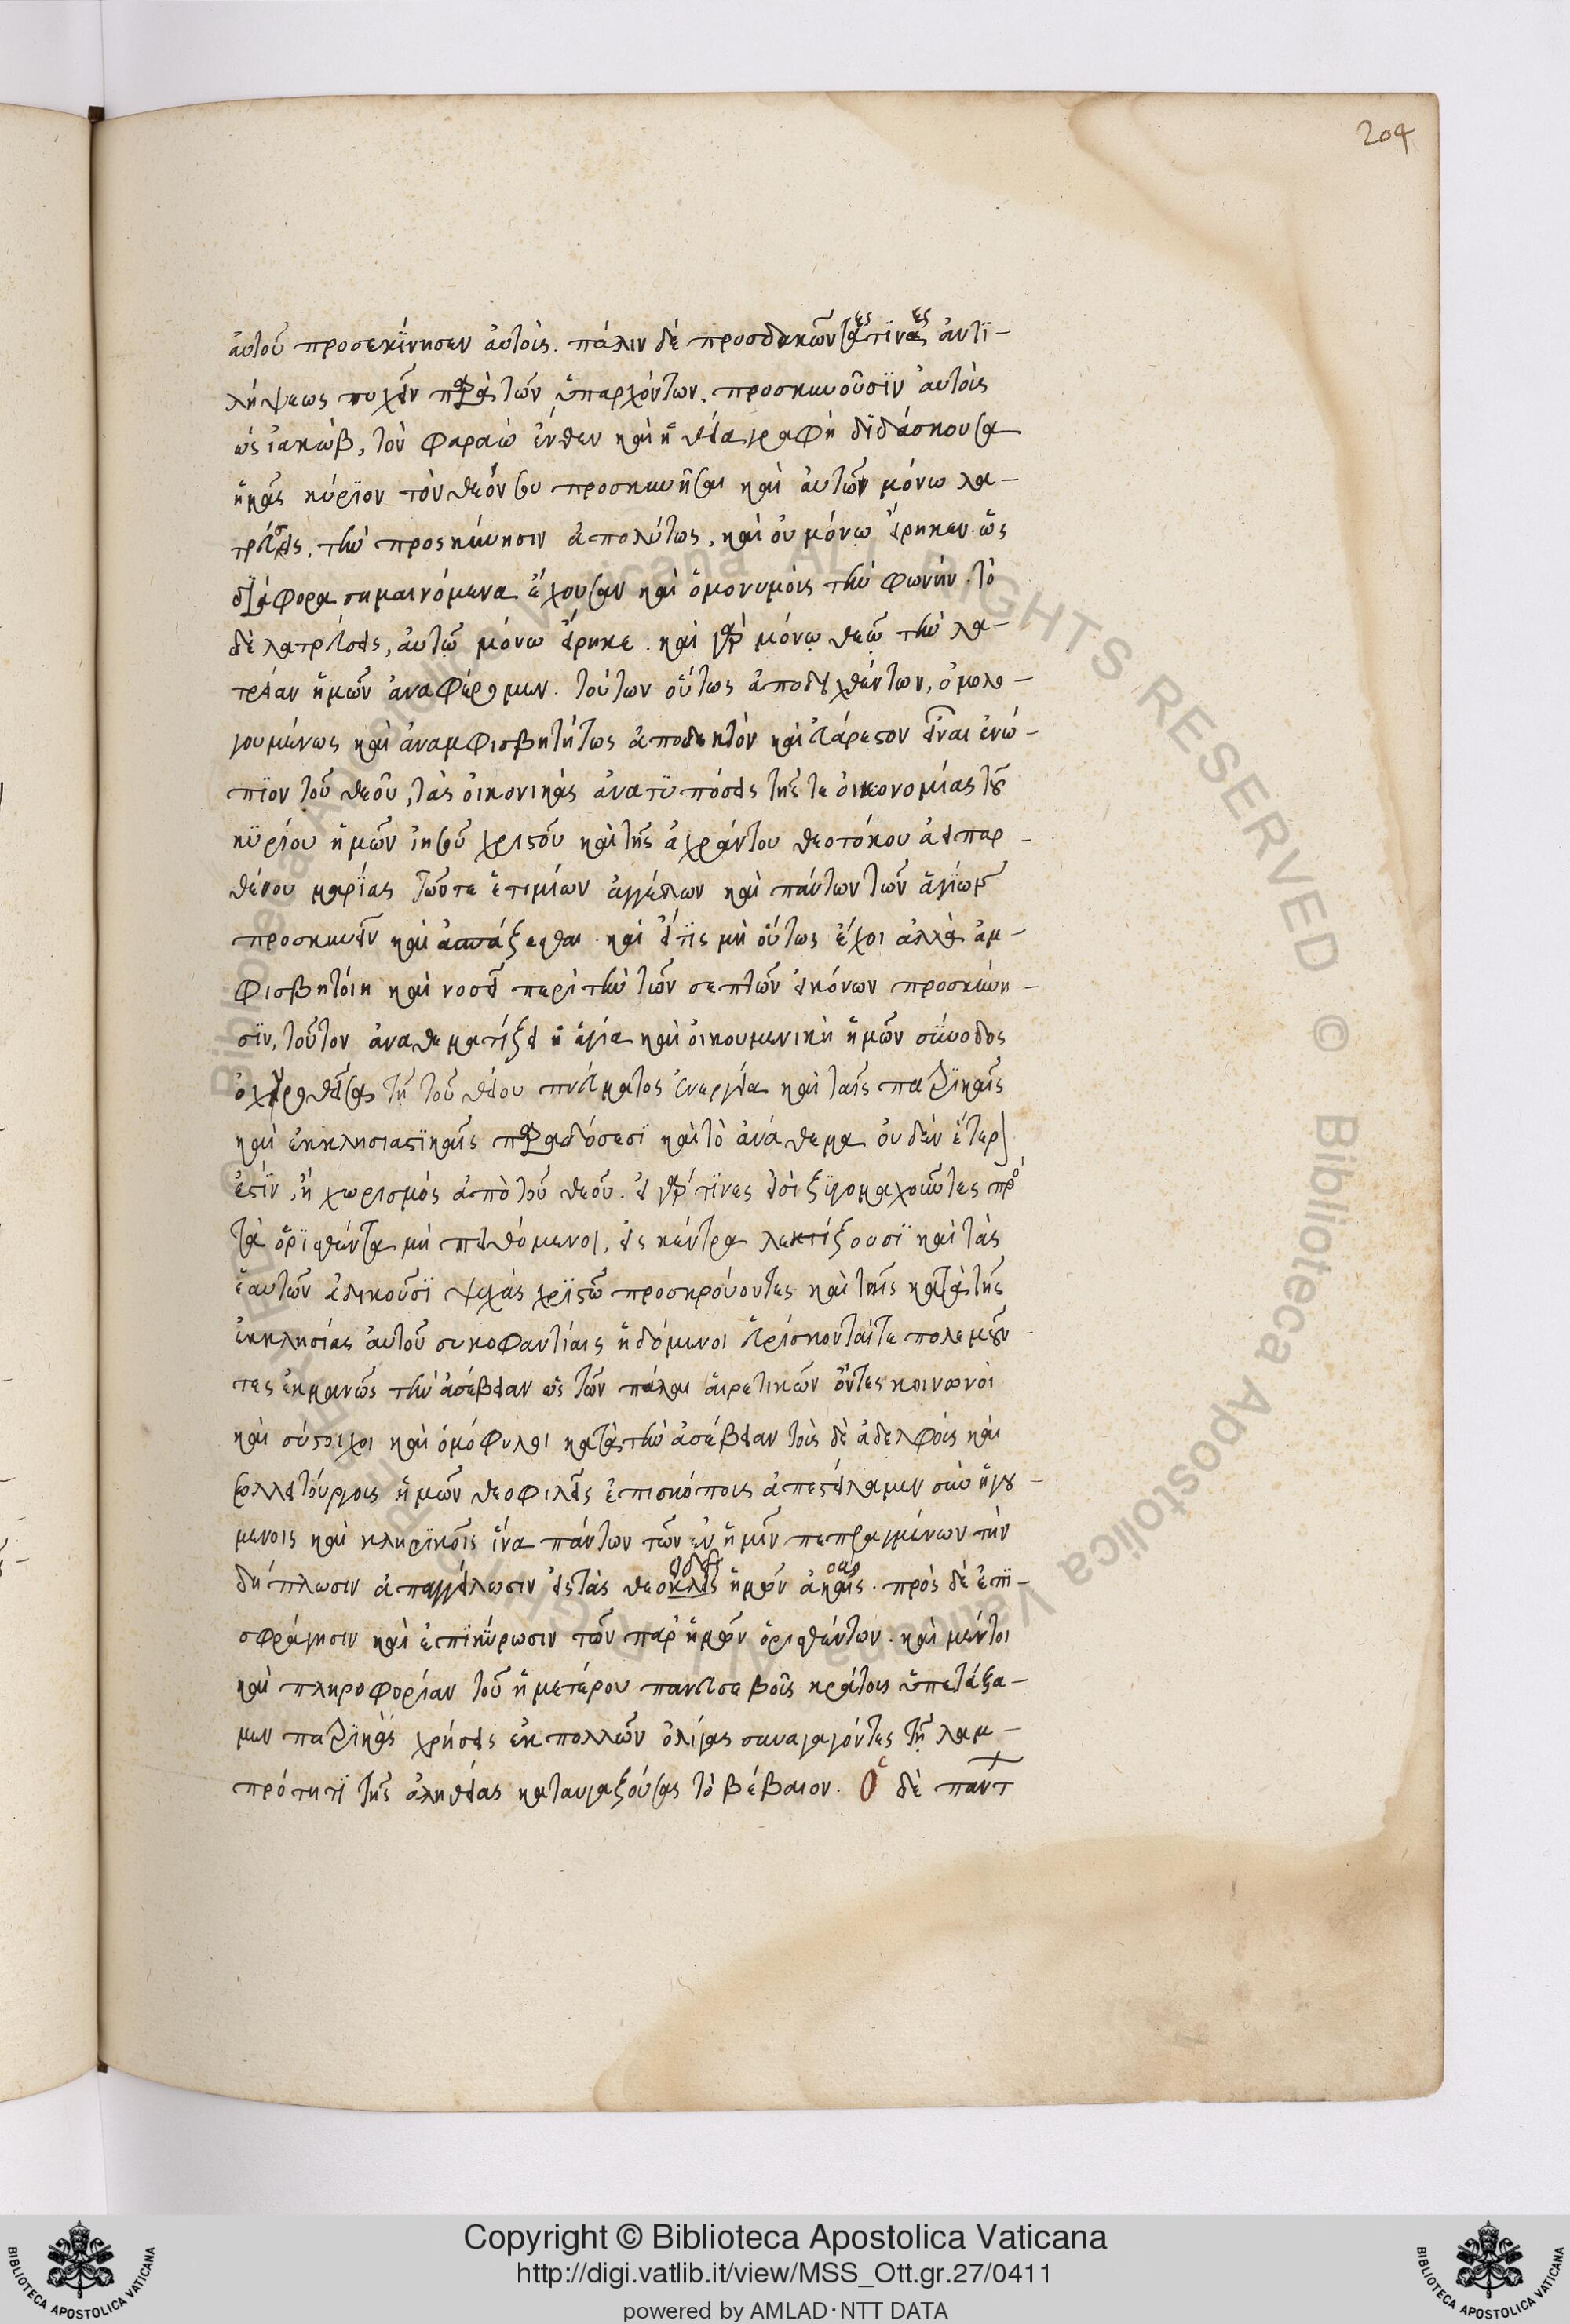 204
αὐτοῦ προσεκΐνησεν αὐτοὶς. πάλιν δέ προσδοκῶντες τϊνες ἀντϊ-
λήψεως τυχεῖν παρὰ τῶν ὑπαρχόντων. προσκυνοῦσϊν αὐτοὶς
ὡς ἰακὼβ, τὸν φαραὼ ἔνθεν καὶ ἡ θεία γραφὴ δϊδάσκουσα
ἡμᾶς κύρϊον τὸν θεόν σου προσκυνῆσαι καὶ αὐτῶν μόνω λα-
τρεύσεις, τὴν προσκύνησιν ἀπολύτως, καὶ οὐ μόνω εἴρηκεν. ὡς
διάφορα σημαινόμενα ἔχουσαν καὶ ὁμονυμόις τὴν φωνὴν. τὸ
δὲ λατρεύσεις, αὐτῶ μόνω εἴρηκε. καὶ γὰρ μόνω θεῶ τὴν λα-
τρείαν ἡμῶν ἀναφέρομεν. τούτων οὕτως ἀποδειχθέντων, ὁμολο-
γουμένως καὶ ἀναμφισβητήτως ἀποδεκτὸν καὶ εὐάρεστον εἶναι ἐνώ-
πϊον τοῦ θεοῦ, τὰς οἰκονικὰς ἀνατϋπόσεις τῆς τε οἰκονομίας τοῦ
κϋρίου ἡμῶν ἰησοῦ χριστοῦ καὶ τῆς ἀχράντου θεοτόκου ἀειπαρ-
θένου μαρΐας τῶν τε ἐτιμίων ἀγγέλων καὶ πάντων τῶν ἁγΐων
προσκυνεῖν καὶ ἀσπάζεσθαι. καὶ εἴ τϊς μὴ οὕτως ἔχοι ἀλλὰ ἀμ-
φισβητοίη καὶ νοσεῖ περὶ τὴν τῶν σεπτῶν εἰκόνων προσκύνη-
σϊν, τοῦτον ἀναθεματίζει ἡ ἁγία καὶ οἰκουμενικὴ ἡμῶν σύνοδος
ὀχυρωθεῖσα τῆ τοῦ θείου πνεύματος ἐνεργεία καὶ ταῖς πατρϊκαῖς
καὶ ἐκκλησιαστϊκαῖς παραδόσεσϊ καὶ τὸ ἀνάθεμα οὐδὲν ἕτερον
ἐστΐν, ἢ χωρισμὸς ἀπὸ τοῦ θεοῦ. εἰ γάρ τϊνες εἰσὶ ζϋγομαχοῦντες πρὸ
τὰ ὁρϊσθέντα μὴ πειθόμενοι, εἰς κέντρα λακτίζουσϊ καὶ τὰς
ἑαυτῶν ἀδικοῦσϊ ψυχὰς χρϊστῶ προσκρούοντες καὶ ταῖς κατὰ τῆς
ἐκκλησίας αὐτοῦ συκοφαντίαις ἡδόμενοι εὑρίσκονταί τε πολεμοῦν-
τες ἐκμανῶς τὴν ἀσέβειαν ὡς τῶν πάλαι αἱρετικῶν ὄντες κοινωνοὶ
καὶ σύστοιχοι καὶ ὁμόφυλοι κατὰ τὴν ἀσέβειαν τοὶς δὲ ἀδελφοὶς καὶ
συλλειτούργοις ἡμῶν θεοφιλεῖς ἐπισκόποις ἀπεστείλαμεν σὺν ἡγου-
μενοις καὶ κληρϊκοῖς ἵνα πάντων τῶν ἐν ἡμῖν πεπραγμένων τὴν
δήπλωσιν ἀπαγγείλωσιν εἰς τὰς θεοκλεῖς ἡμῶν ἀκοὰς. πρὸς δὲ ἐπϊ-
σφράγησιν καὶ ἐπϊκύρωσιν τῶν παρ' ἡμῶν ὁρισθέντων. καὶ μέντοι
καὶ πληροφορίαν τοῦ ἡμετέρου πανευσεβοῖς κράτοις ὑπετάξα-
μεν πατρϊκὰς χρήσεις ἐκ πολλῶν ὀλίγας συναγαγόντες τῆ λαμ-
πρότητϊ τῆς ἀληθείας καταυγαζούσας τὸ βέβαιον. Ὁ δὲ παντ
Copyright © Biblioteca Apostolica Vaticana
http://digi.vatlib.it/view/MSS_Ott.gr.27/0411
powered by AMLAD·NTT DATA
BIBLIOTECA APOSTOLICA VATICANA
BIBLIOTECA APOSTOLICA VATICANA